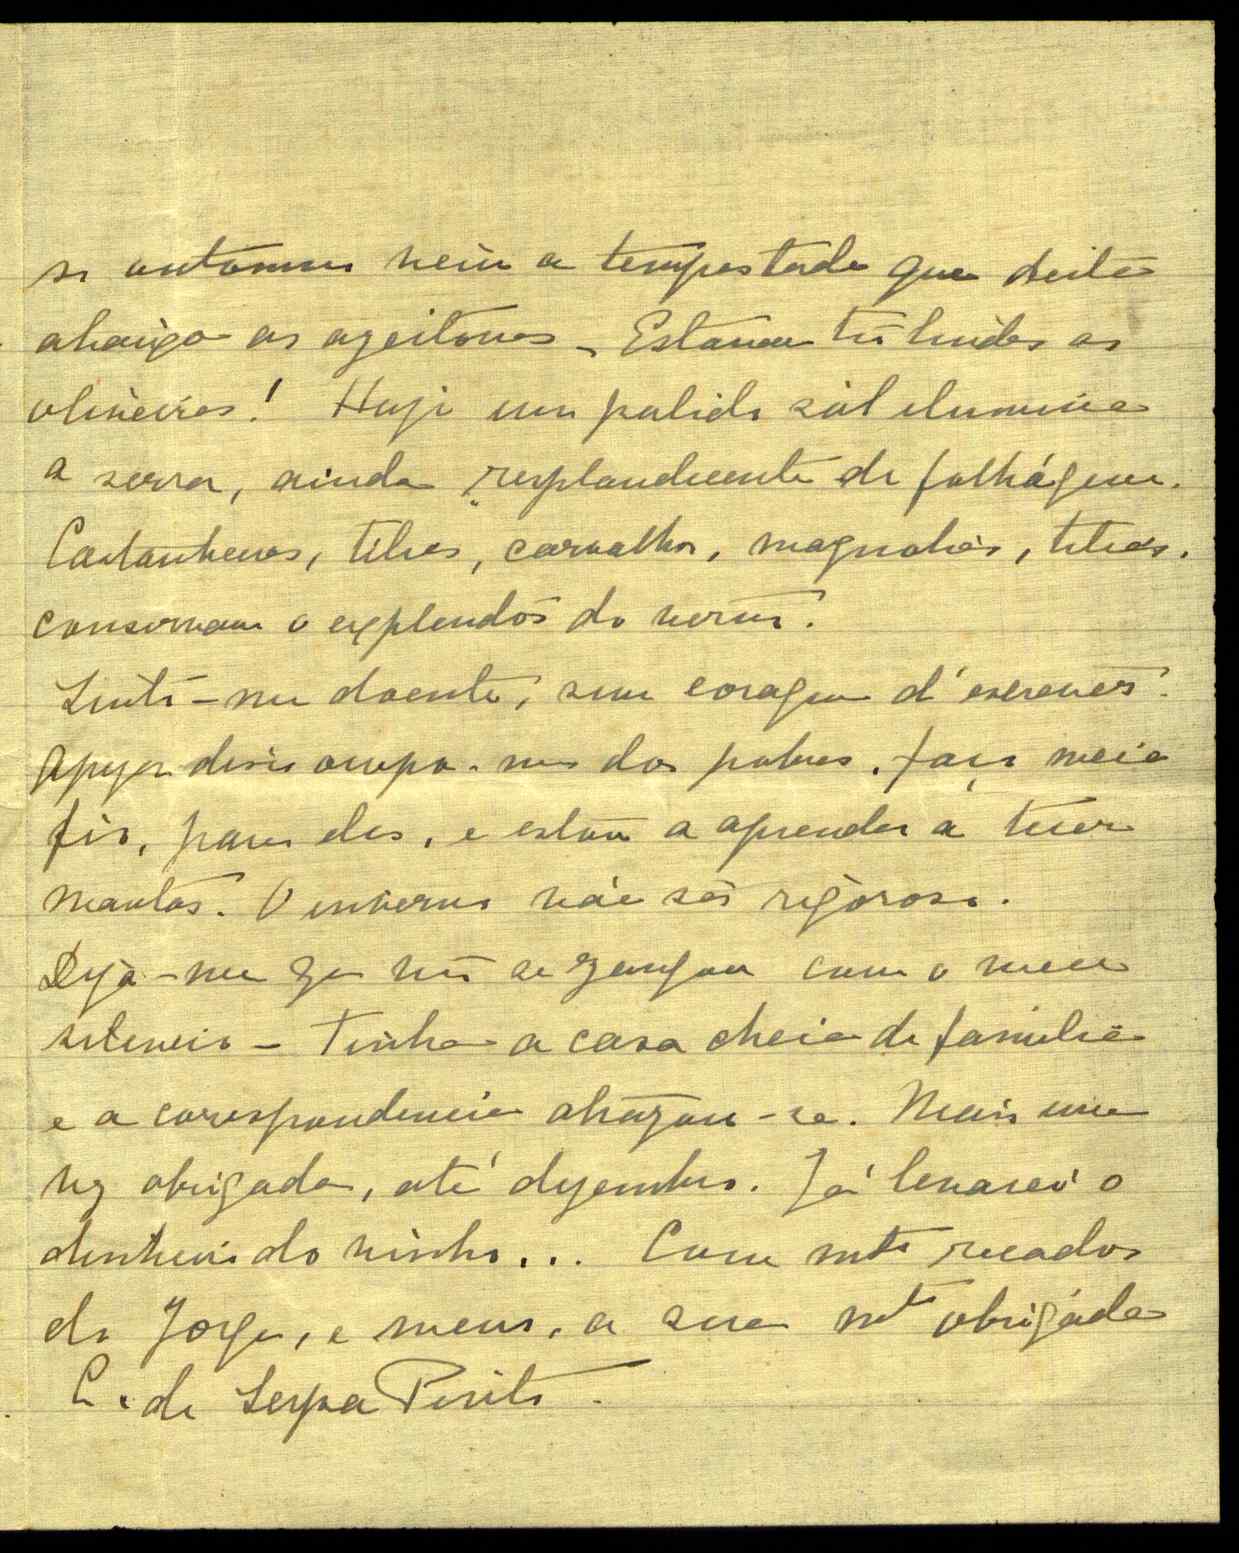 outomno veiu a tempestade que deita
abaixo as azeitonas – Estavam tã lindas as
oliveiras! Hoje um palido sól ilumina
a serra, ainda resplandecente de folhágem.
Castanheiros, tilias, carvalhos, magnolias, tilias,
conservam o explendôr do verão.
Sinto-me doente, sem coragem d'escrever.
Apezar disso occupo-me dos pobres, faço meia
fio, para eles, e estou a aprender a tecer
mantas. O inverno vae sêr rigoroso.
Diga-me se nã se zangou com o meu
silencio – Tinha a casa cheia de familia
e a corespondencia atrazou-se. Mais uma
vez obrigada, até dezembro. Já levarei o
dinheiro do vinho... Com mtos recados
do Jorge, e meus, a sua mto obrigáda
C. de Serpa Pinto.